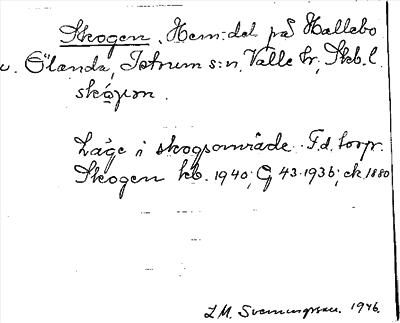 Skogen. Hem:del på Hallebo
u. Ölanda, Istrum s:n, Valle hr, Skb. l.
skógen.
Läge i skogsområde. F.d. torp.
Skogen kb. 1940; G 43 1936; ek 1880
L.M. Svenungsson. 1946.